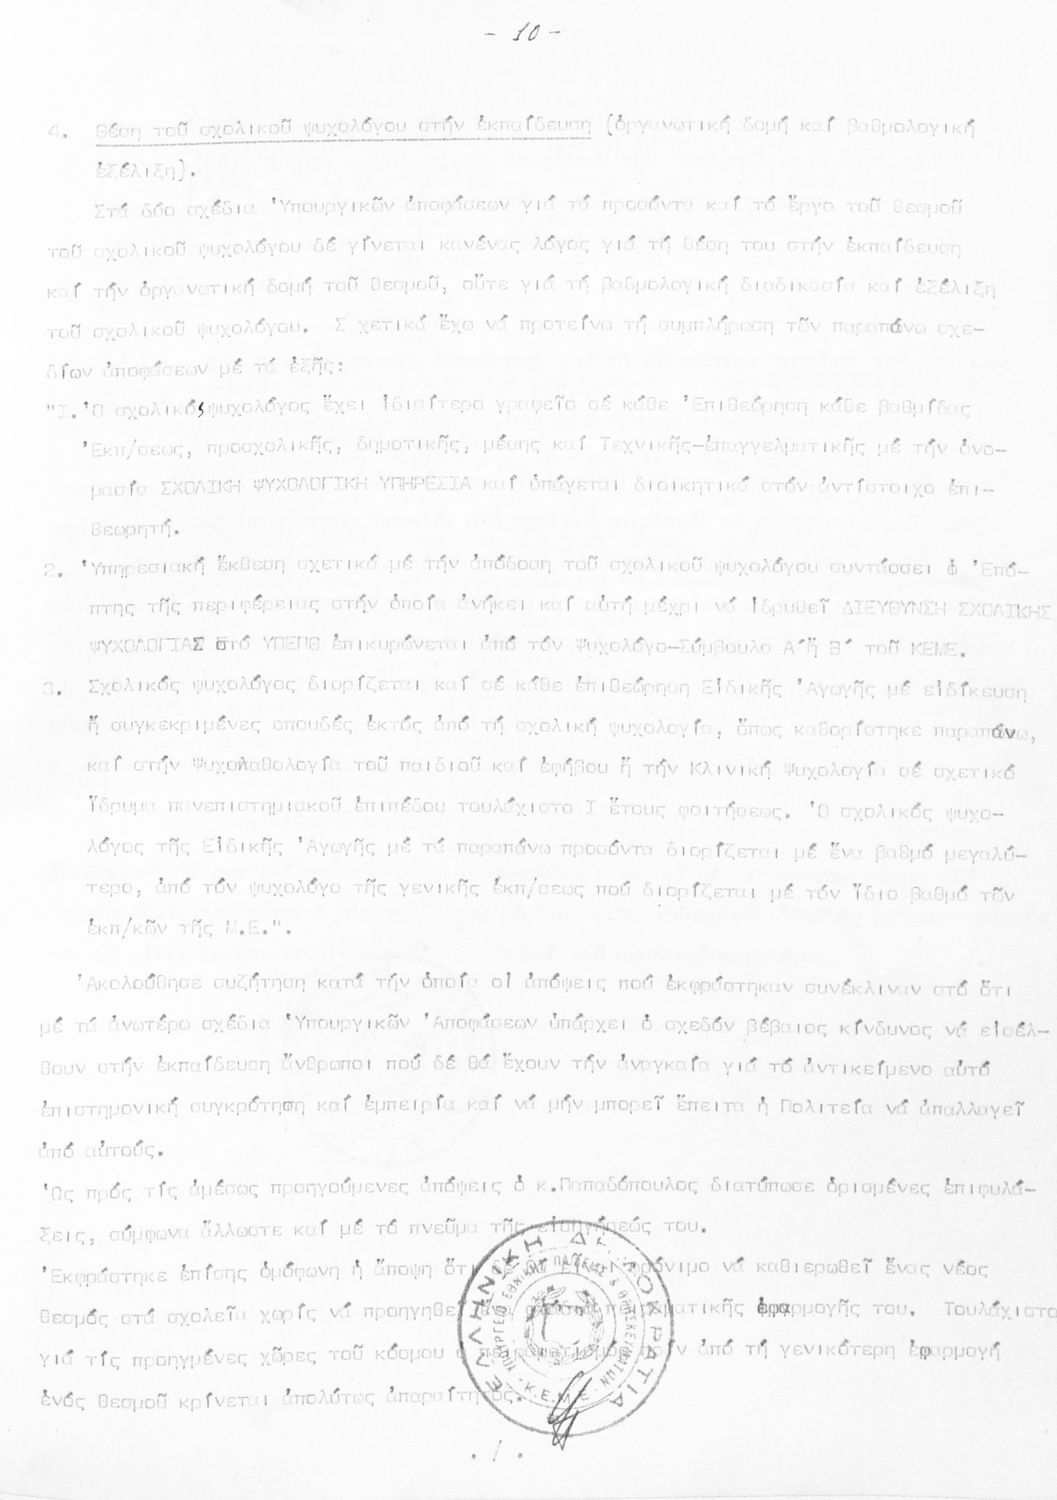 - 10 -
4. Θέση τοῦ σχολικοῦ ψυχολόγου στήν ἐκπαίδευση (ὀργανωτική δομή καί βαθμολογική
ἐξέλιξη).
Στά δύο σχέδια Ὑπουργικῶν ἀποφάσεων γιά τά προσόντα καί τό ἔργο τοῦ θεσμοῦ
τοῦ σχολικοῦ ψυχολόγου δέ γίνεται κανένας λόγος γιά τή θέση του στήν ἐκπαίδευση
καί τήν ὀργανωτική δομή τοῦ θεσμοῦ, οὔτε γιά τή βαθμολογική διαδικασία καί ἐξέλιξη
τοῦ σχολικοῦ ψυχολόγου. Σ χετικά ἔχω νά προτείνω τή συμπλήρωση τῶν παραπάνω σχε-
δίων ἀποφάσεων μέ τά ἑξῆς:
"I. Ὁ σχολικός ψυχολόγος ἔχει ἰδιαίτερο γραφεῖο σέ κάθε Ἐπιθεώρηση κάθε βαθμίδας
Ἐκπ/σεως, προσχολικῆς, δημοτικῆς, μέσης καί Τεχνικῆς-ἐπαγγελματικῆς μέ τήν ὀνο-
μασία ΣΧΟΛΙΚΗ ΨΥΧΟΛΟΓΙΚΗ ΥΠΗΡΕΣΙΑ καί ὑπάγεται διοικητικά στόν ἀντίστοιχο ἐπι-
θεωρητή.
2. Ὑπηρεσιακή ἔκθεση σχετικά μέ τήν ἀπόδοση τοῦ σχολικοῦ ψυχολόγου συντάσσει ὁ Ἐπό-
πτης τῆς περιφέρειας στήν ὁποία ἀνήκει καί αὐτή μέχρι νά ἱδρυθεῖ ΔΙΕΥΘΥΝΣΗ ΣΧΟΛΙΚΗΣ
ΨΥΧΟΛΟΓΙΑΣ στό ΥΠΕΠΘ ἐπικυρώνεται ἀπό τόν Ψυχολόγο-Σύμβουλο Α΄ἤ Β΄ τοῦ ΚΕΜΕ.
3. Σχολικός ψυχολόγος διορίζεται καί σέ κάθε ἐπιθεώρηση Εἰδικῆς Ἀγωγῆς μέ εἰδίκευση
ἤ συγκεκριμένες σπουδές ἐκτός ἀπό τή σχολική ψυχολογία, ὅπως καθορίστηκε παραπάνω,
καί στήν Ψυχοπαθολογία τοῦ παιδιοῦ καί ἐφήβου ἤ τήν Κλινική Ψυχολογία σέ σχετικό
ἵδρυμα πανεπιστημιακοῦ ἐπιπέδου τουλάχιστο I ἔτους φοιτήσεως. Ὁ σχολικός ψυχο-
λόγος τῆς Εἰδικῆς Ἀγωγῆς μέ τά παραπάνω προσόντα διορίζεται μέ ἕνα βαθμό μεγαλύ-
τερο, ἀπό τόν ψυχολόγο τῆς γενικῆς ἐκπ/σεως πού διορίζεται μέ τόν ἴδιο βαθμό τῶν
ἐκπ/κῶν τῆς Μ.Ε.".
Ἀκολούθησε συζήτηση κατά τήν ὁποία οἱ ἀπόψεις πού ἐκφράστηκαν συνέκλιναν στό ὅτι
μέ τά ἀνωτέρο σχέδια Ὑπουργικῶν Ἀποφάσεων ὑπάρχει ὁ σχεδόν βέβαιος κίνδυνος νά εἰσέλ-
θουν στήν ἐκπαίδευση ἄνθρωποι πού δέ θά ἔχουν τήν ἀναγκαία γιά τό ἀντικείμενο αὐτό
ἐπιστημονική συγκρότηση καί ἐμπειρία καί νά μήν μπορεῖ ἔπειτα ἡ Πολιτεία νά ἀπαλλαγεῖ
ἀπό αὐτούς.
Ὡς πρός τίς ἀμέσως προηγούμενες ἀπόψεις ὁ κ.Παπαδόπουλος διατύπωσε ὁρισμένες ἐπιφυλά-
ξεις, σύμφωνα ἄλλωστε καί μέ τό πνεῦμα τῆς εἰσηγήσεώς του.
Ἐκφράστηκε ἐπίσης ὁμόφωνη ἡ ἄποψη ὅτι δέν εἶναι φρόνιμο νά καθιερωθεῖ ἕνας νέος
θεσμός στά σχολεῖα χωρίς νά προηγηθεῖ πειραματικῆς ἐφαρμογῆς του. Τουλάχιστο
γιά τίς προηγμένες χῶρες τοῦ κόσμου ὁ πειραματισμός πρίν ἀπό τή γενικότερη ἐφαρμογή
ἑνός θεσμοῦ κρίνεται ἀπολύτως ἀπαραίτητος.
ΕΛΛΗΝΙΚΗ ΔΗΜΟΚΡΑΤΙΑ
ΥΠΟΥΡΓΕΙΟ ΕΘΝΙΚΗΣ ΠΑΙΔΕΙΑΣ & ΘΡΗΣΚΕΥΜΑΤΩΝ
Κ.Ε.Μ.Ε.
./.